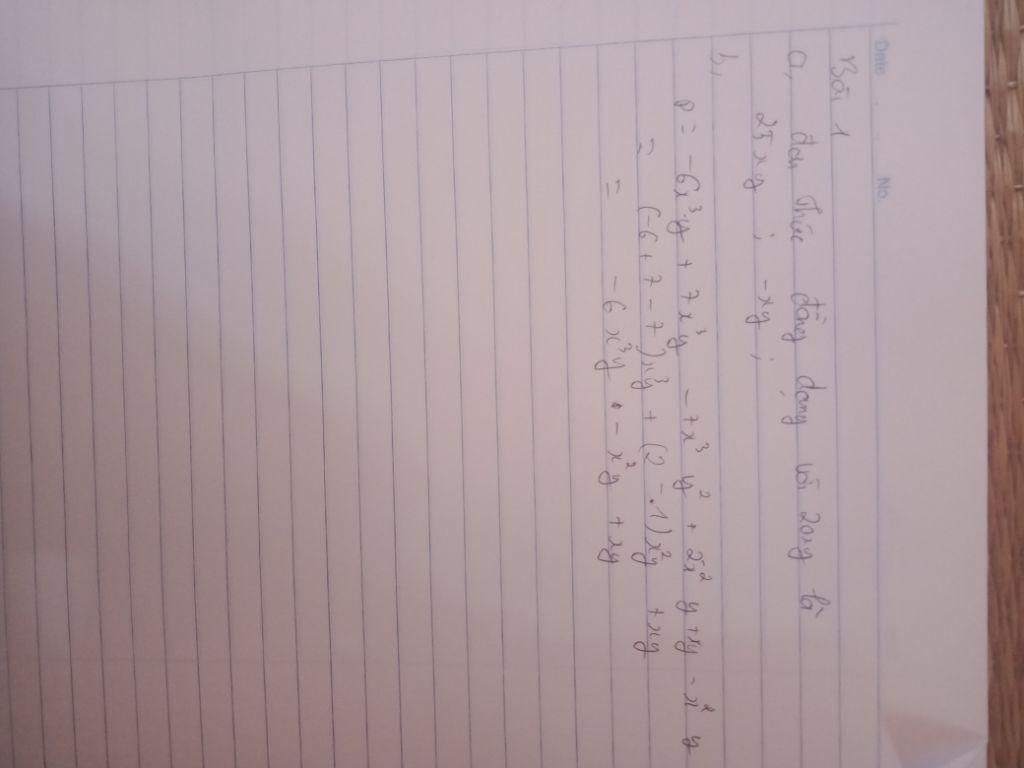 Date No.
Bài 1
a, đơn thức đồng dạng với 20xy là
25xy ; -xy ;
b,
P = -6x³y + 7x³y - 7x³ y² + 2x² y + xy - x² y
= (-6 + 7 - 7)x³y + (2 - 1)x²y + xy
= -6x³y - x²y + xy